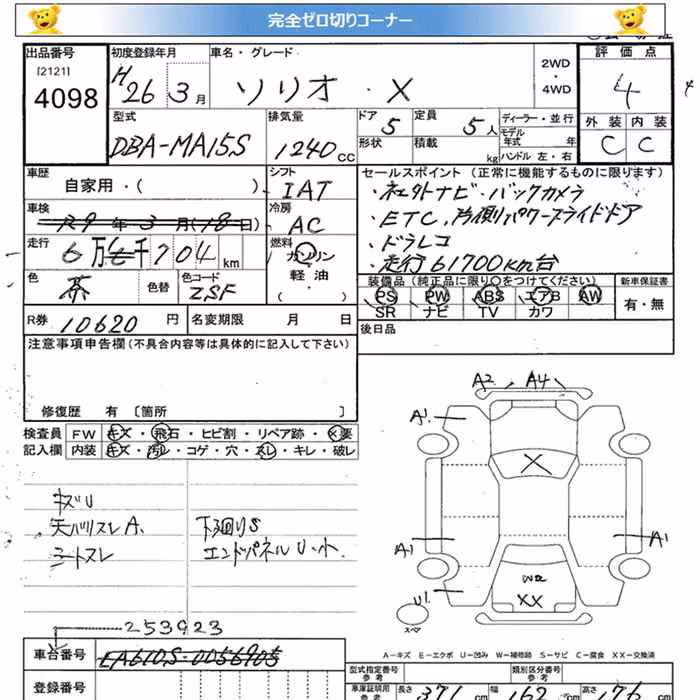 完全ゼロ切りコーナー
出品番号
[2121]
4098
初度登録年月
H26 3月
車名・グレード
ソリオ・X
2WD
・
4WD
評価点
4
外装 内装
C C
型式
DBA-MA15S
排気量
1240cc
ドア
5
形状
定員
5人
積載
kg
ディーラー・並行
モデル年式 年
ハンドル 左・右
車歴
自家用・( )
シフト
IAT
車検
R9年3月(18日)
冷房
AC
走行
6万七千704km
燃料
ガソリン
軽油
・( )
色
茶
色替
色コード
ZSF
セールスポイント (正常に機能するものに限ります)
・社外ナビ・バックカメラ
・ETC、片側パワースライドドア
・ドラレコ
・走行61700km台
装備品 (純正品に限り○をつけてください)
PS PW ABS エアB AW
SR ナビ TV カワ
新車保証書
有・無
R券 10620円
名変期限 月 日
後日品
注意事項申告欄(不具合内容等は具体的に記入して下さい)
修復歴 有 〔箇所 〕
検査員
記入欄
FW キズ・飛石・ヒビ割・リペア跡・×要
内装 キズ・汚レ・コゲ・穴・スレ・キレ・破レ
キズU
天バリスレA、
シートスレ
下廻りS
エンドパネルU・小
A2 A4
A1
X
A1
A1
W2
XX
U1
スペア
253923
車台番号 EA610S-0056905
登録番号
A-キズ E-エクボ U-凹み W-補修跡 S-サビ C-腐食 XX-交換済
型式指定番号
参考
類別区分番号
参考
車庫証明用
参考
長さ 371cm 幅 162cm 高さ 176cm